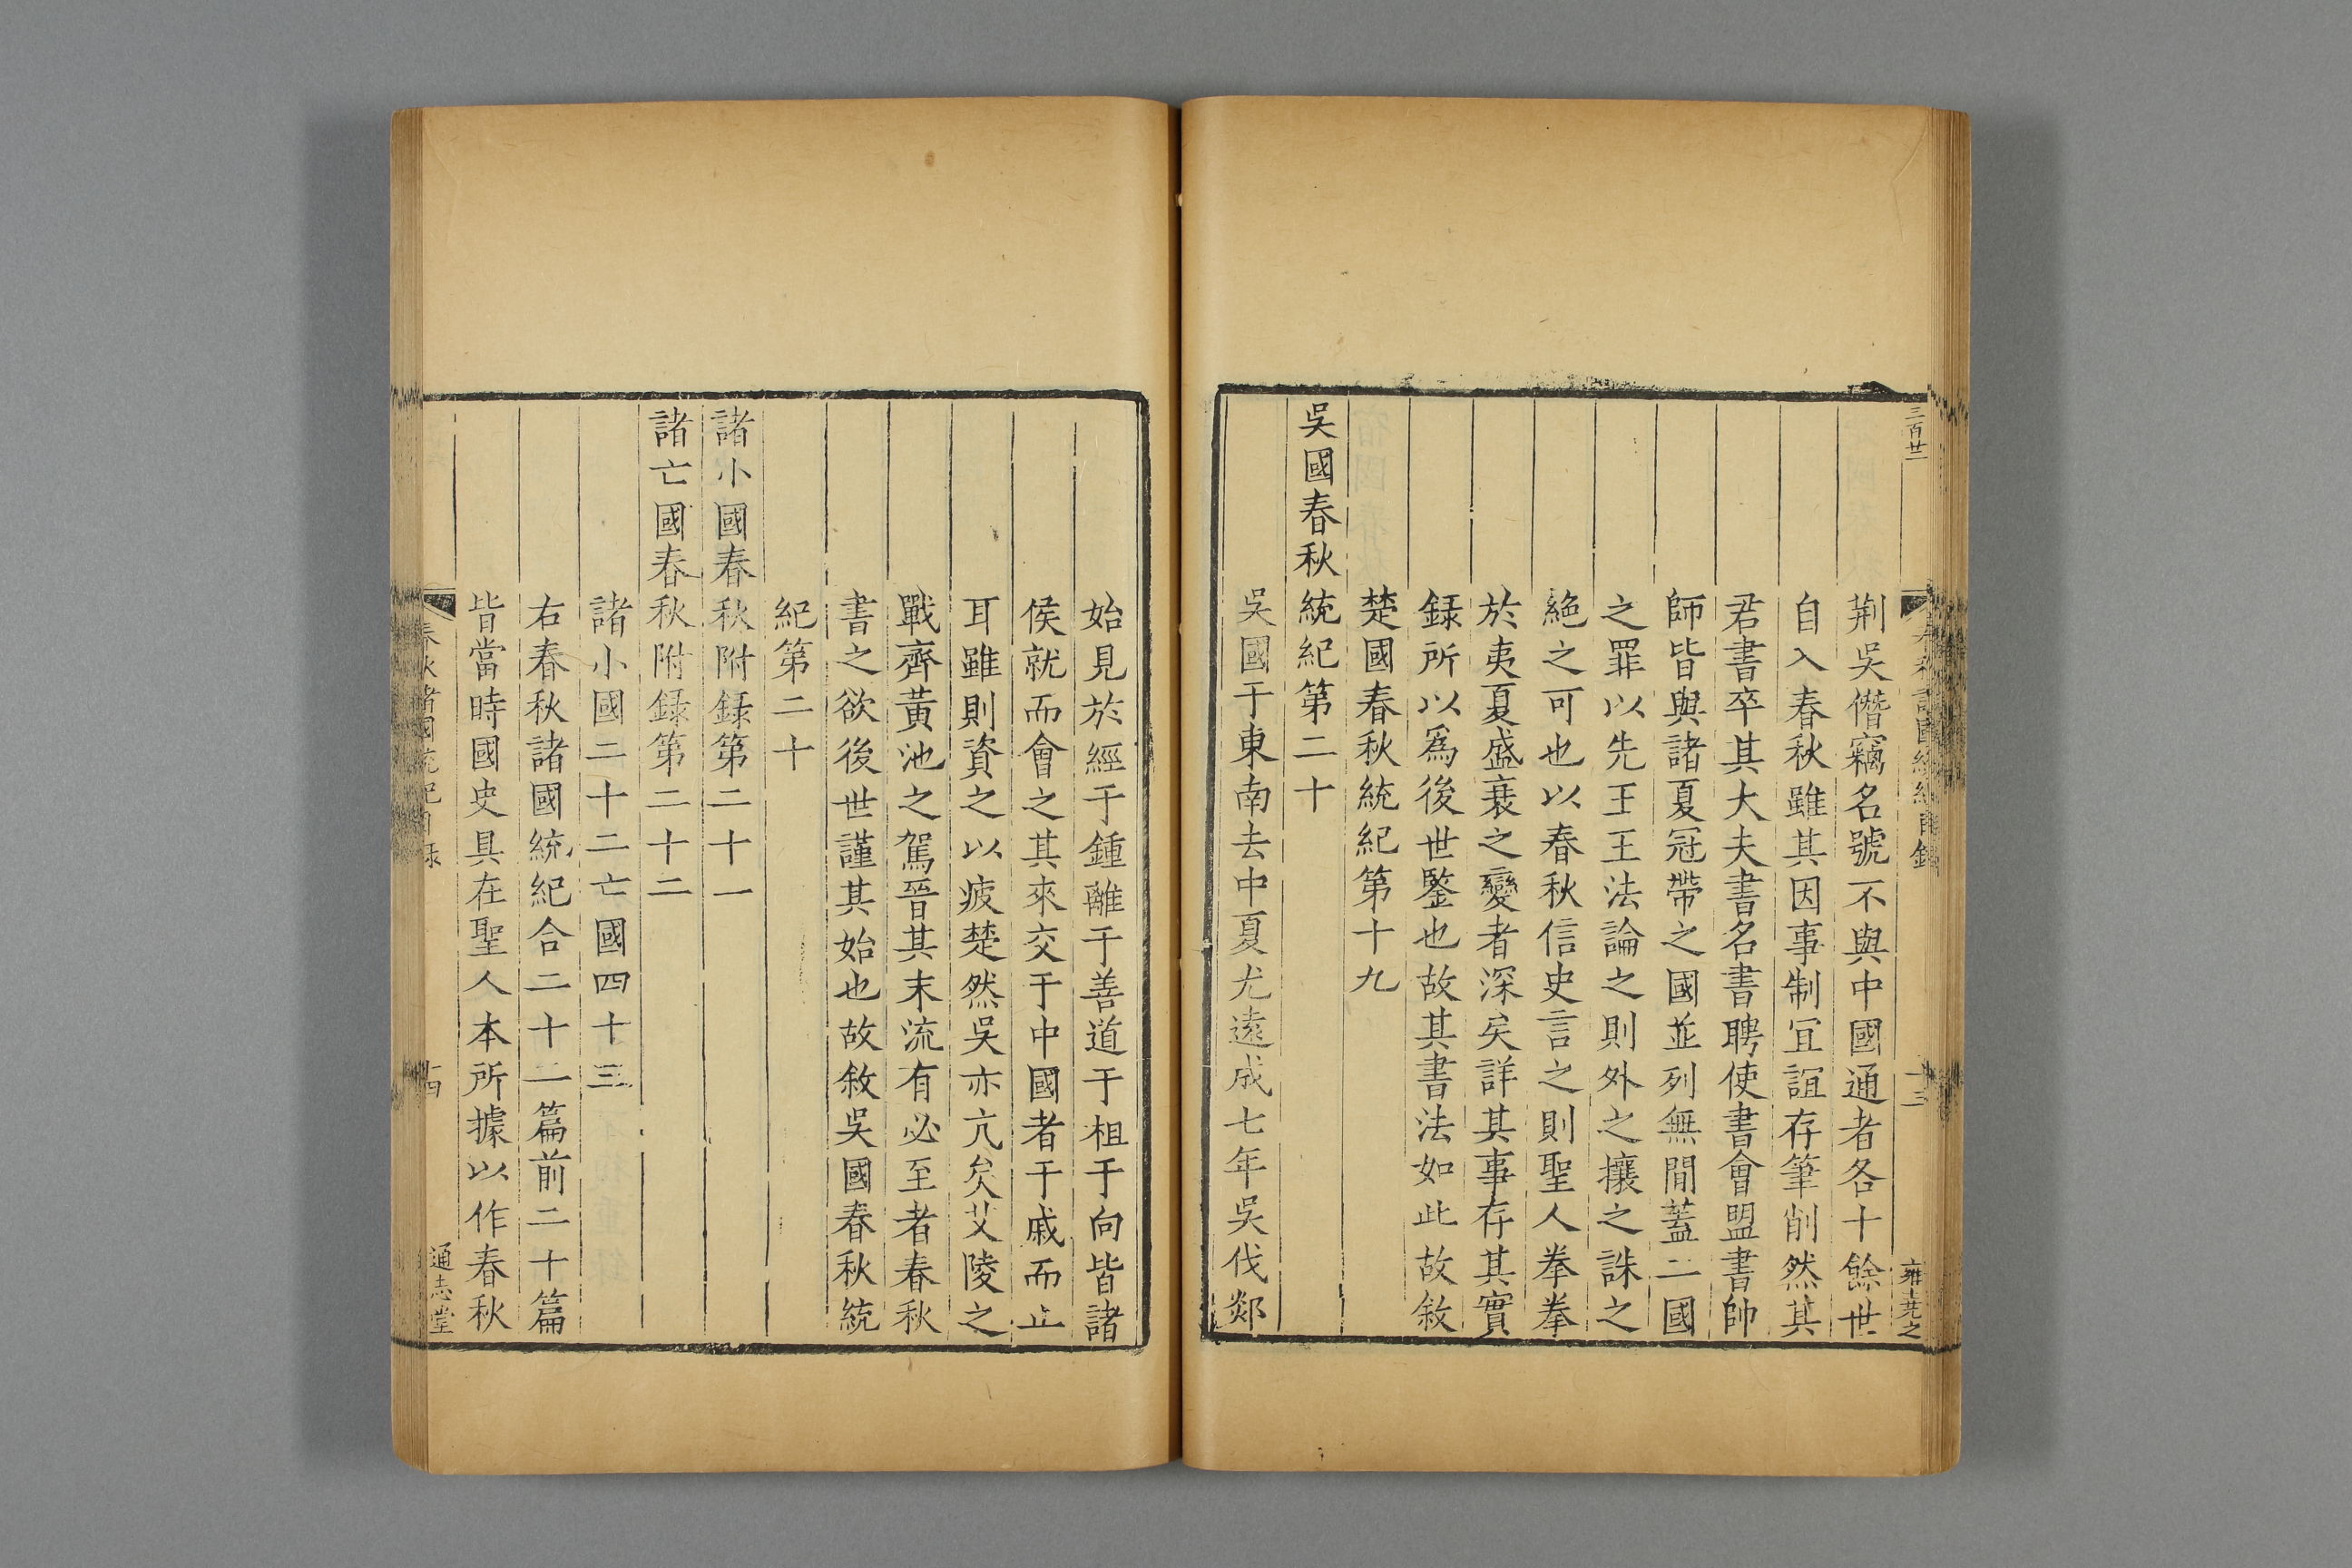 三百廿二
春秋諸國統紀目錄
十三
荆吳僭竊名號不與中國通者各十餘世
自入春秋雖其因事制冝誼存筆削然其
君書卒其大夫書名書聘使書會盟書帥
師皆與諸夏冠帶之國並列無間蓋二國
之罪以先王王法論之則外之攘之誅之
絶之可也以春秋信史言之則聖人拳拳
於夷夏盛衰之變者深矣詳其事存其實
録所以爲後世鑒也故其書法如此故敘
楚國春秋統紀第十九
吳國春秋統紀第二十
吳國于東南去中夏尤遠成七年吳伐郯
始見於經于鍾離于善道于柤于向皆諸
侯就而會之其來交于中國者于戚而止
耳雖則資之以疲楚然吳亦亢矣艾陵之
戰齊黃池之駕晉其末流有必至者春秋
書之欲後世謹其始也故敘吳國春秋統
紀第二十
諸小國春秋附録第二十一
諸亡國春秋附録第二十二
諸小國二十二亡國四十三
右春秋諸國統紀合二十二篇前二十篇
皆當時國史具在聖人本所據以作春秋
春秋諸國統紀目録
十四
通志堂